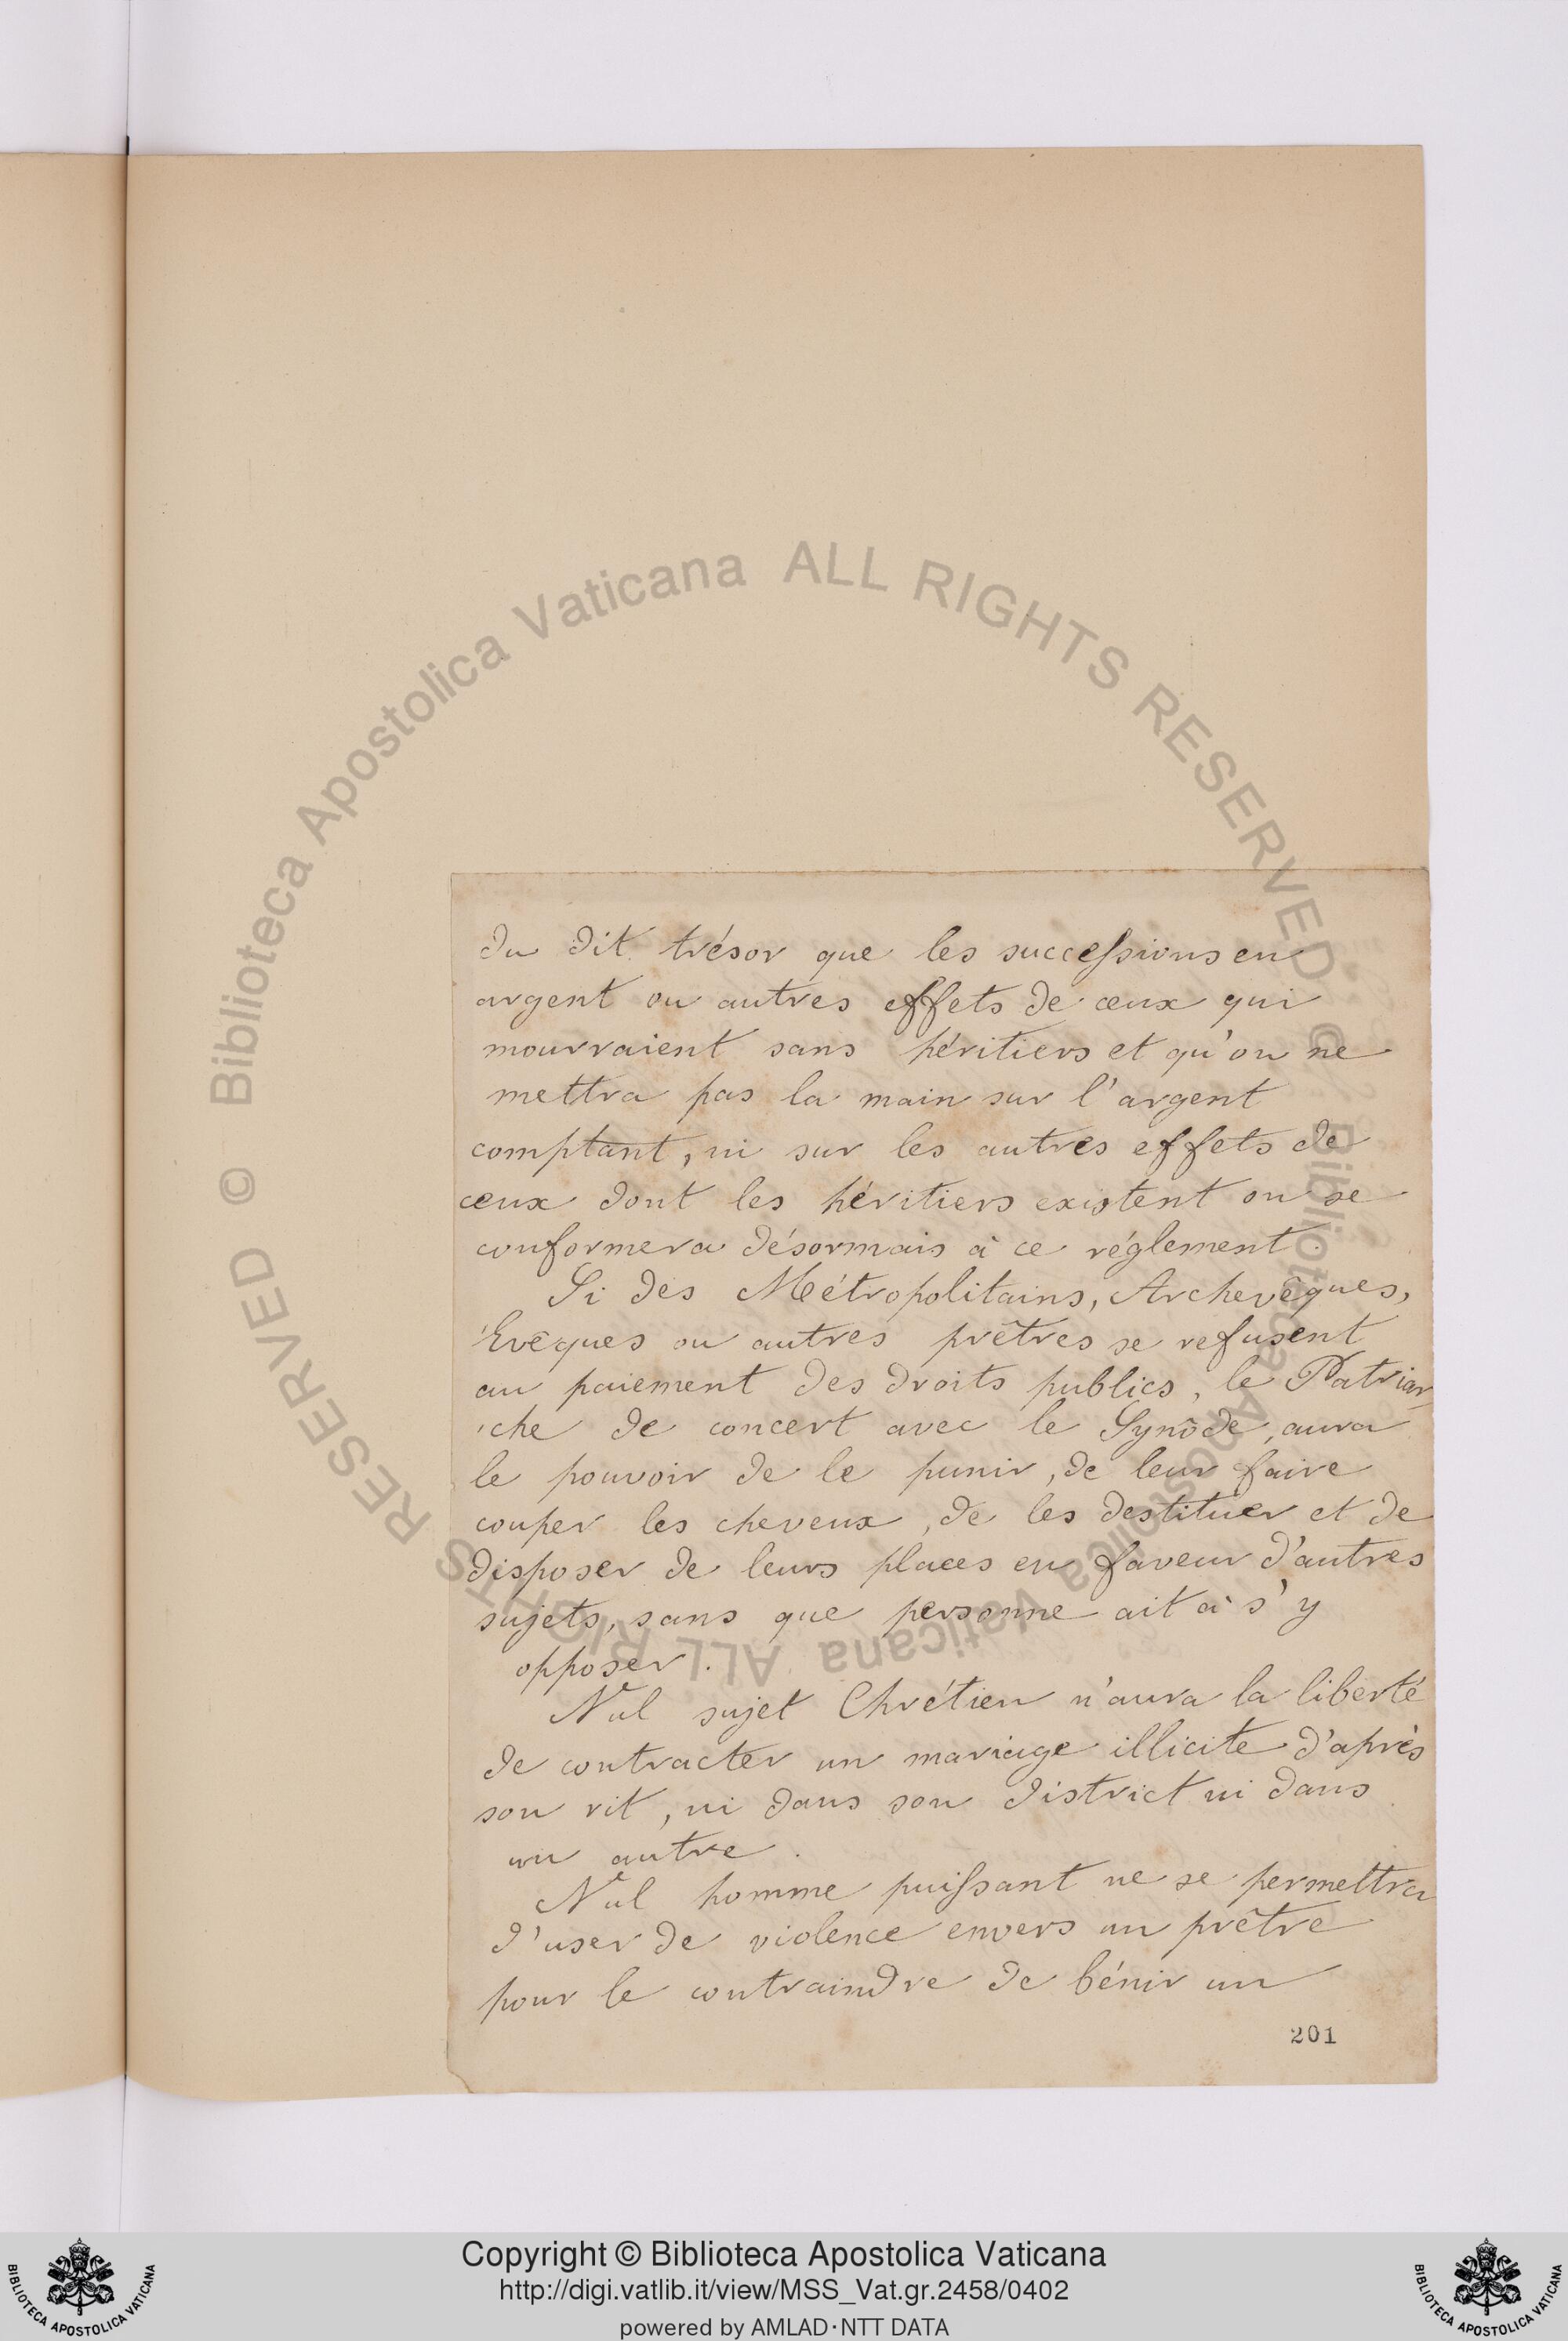 du dit trésor que les successions en
argent ou autres effets de ceux qui
mourraient sans héritiers et qu'on ne
mettra pas la main sur l'argent
comptant, ni sur les autres effets de
ceux dont les héritiers existent on se
conformera désormais à ce réglement.
Si des Métropolitains, Archevêques,
Evêques ou autres prêtres se refusent
au paiement des droits publics, le Patriar
che de concert avec le Synode, aura
le pouvoir de le punir, de leur faire
couper les cheveux, de les destituer et de
disposer de leurs places en faveur d'autres
sujets, sans que personne ait à s'y
opposer.
Nul sujet Chrétien n'aura la liberté
de contracter un mariage illicite d'après
son rit, ni dans son district ni dans
un autre.
Nul homme puissant ne se permettra
d'user de violence envers un prêtre
pour le contraindre de bénir un
201
© Biblioteca Apostolica Vaticana ALL RIGHTS RESERVED
© Biblioteca Apostolica Vaticana ALL RIGHTS RESERVED
Copyright © Biblioteca Apostolica Vaticana
http://digi.vatlib.it/view/MSS_Vat.gr.2458/0402
powered by AMLAD·NTT DATA
BIBLIOTECA APOSTOLICA VATICANA
BIBLIOTECA APOSTOLICA VATICANA